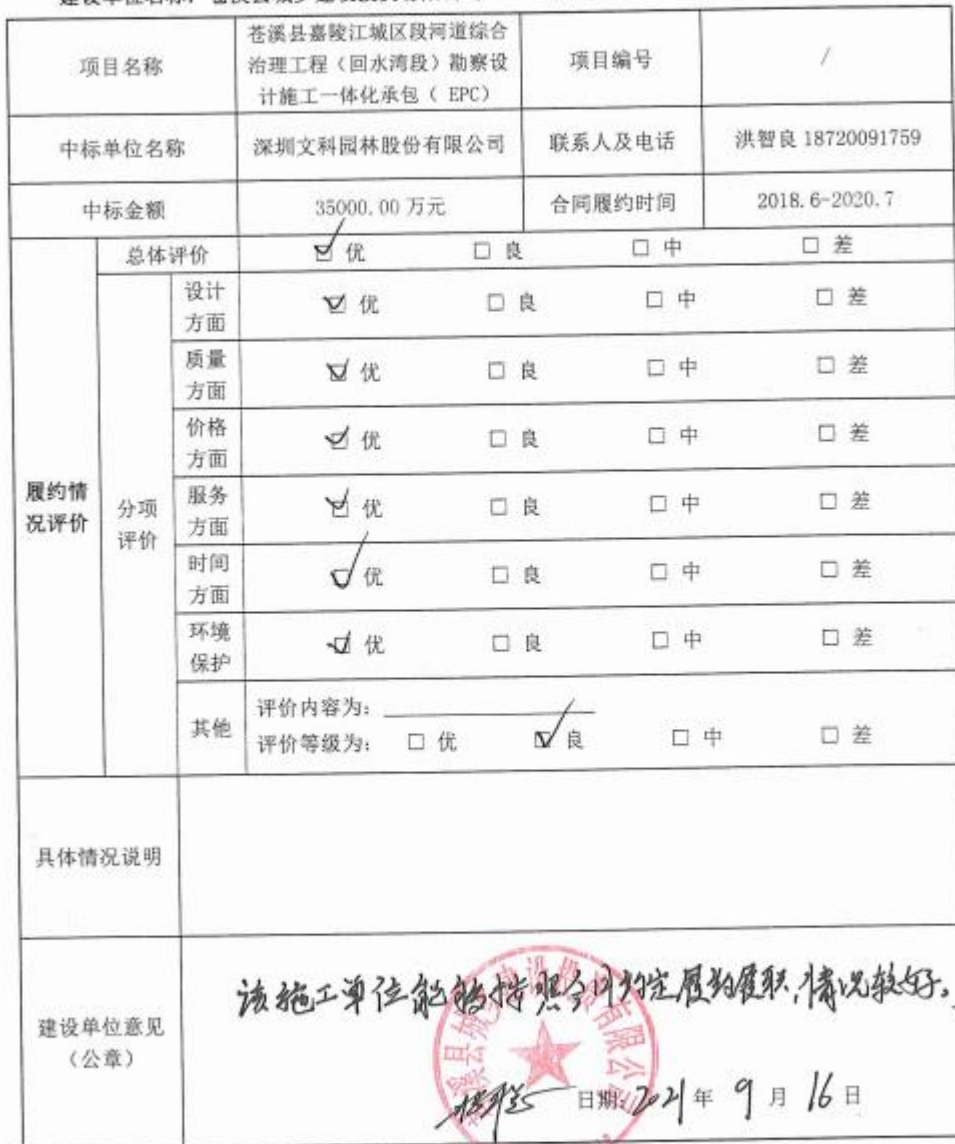 项目名称
苍溪县嘉陵江城区段河道综合
治理工程（回水湾段）勘察设
计施工一体化承包（ EPC）
项目编号
/
中标单位名称
深圳文科园林股份有限公司
联系人及电话
洪智良 18720091759
中标金额
35000.00 万元
合同履约时间
2018.6-2020.7
履约情
况评价
总体评价
☑ 优 □ 良 □ 中 □ 差
分项
评价
设计
方面
☑ 优 □ 良 □ 中 □ 差
质量
方面
☑ 优 □ 良 □ 中 □ 差
价格
方面
☑ 优 □ 良 □ 中 □ 差
服务
方面
☑ 优 □ 良 □ 中 □ 差
时间
方面
☑ 优 □ 良 □ 中 □ 差
环境
保护
☑ 优 □ 良 □ 中 □ 差
其他
评价内容为：
评价等级为： □ 优 ☑ 良 □ 中 □ 差
具体情况说明
建设单位意见
（公章）
该施工单位能够按照合同约定履约履职，情况较好。
日期：2021 年 9 月 16 日